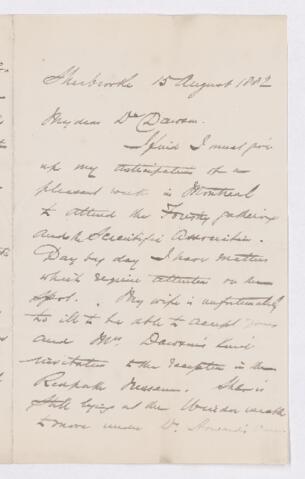 Sherbrooke 15 August 1882
My dear Dr Dawson.
I find I must give
up my anticipation of a
pleasant week in Montreal
to attend the gathering
and the Scientific Association.
Day by day I have matters
which require attention on the
spot. My wife is unfortunately
to ill to be able to accept yours
and Mrs Dawson's kind
invitation to the reception in the
Redpath Museum. She is
still lying at the Windsor unable
to move under Dr